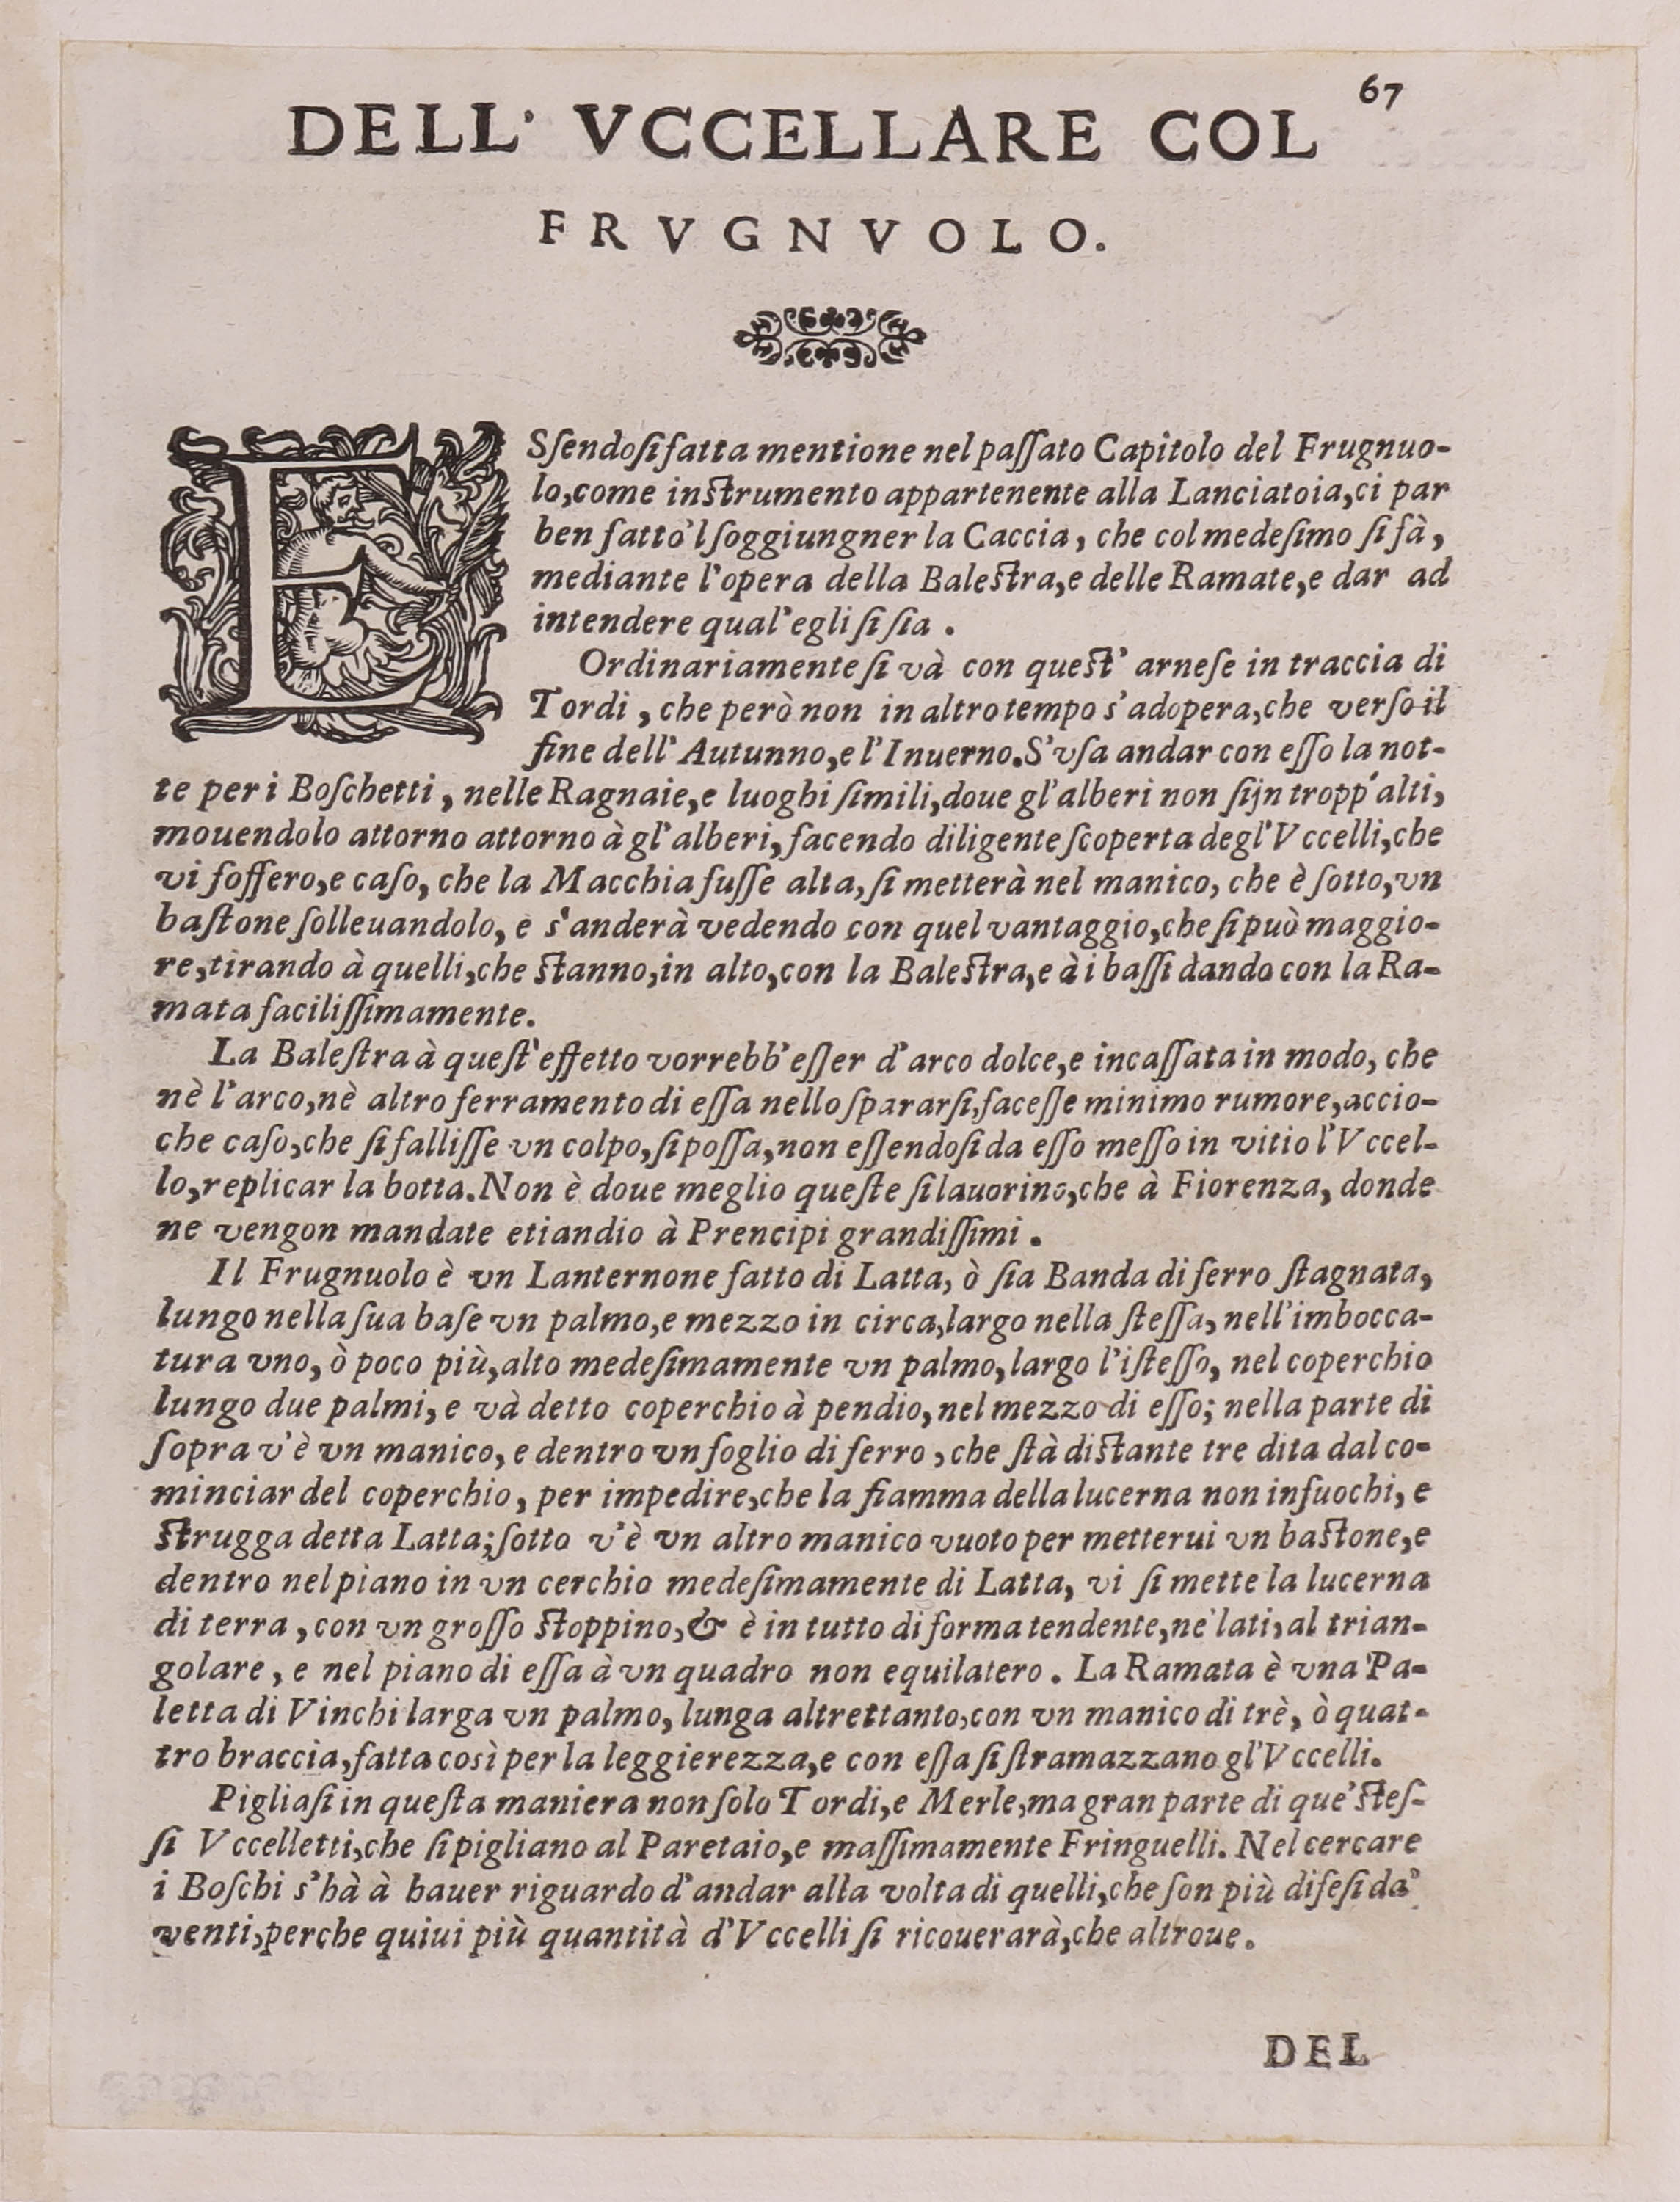 67
DELL' VCCELLARE COL
FRVGNVOLO.
ESſendoſi fatta mentione nel paſſato Capitolo del Frugnuo-
lo,come inſtrumento appartenente alla Lanciatoia,ci par
ben fatto'l ſoggiungner la Caccia, che col medeſimo ſi fà,
mediante l'opera della Baleſtra,e delle Ramate,e dar ad
intendere qual'egli ſi ſia.
Ordinariamente ſi và con queſt' arneſe in traccia di
Tordi, che però non in altro tempo s'adopera,che verſo il
fine dell' Autunno,e l'Inuerno.S'vſa andar con eſſo la not-
te per i Boſchetti, nelle Ragnaie,e luoghi ſimili,doue gl'alberi non ſijn tropp'alti,
mouendolo attorno attorno à gl'alberi, facendo diligente ſcoperta degl'Vccelli,che
vi foſſero,e caſo, che la Macchia fuſſe alta, ſi metterà nel manico, che è ſotto,vn
baſtone ſolleuandolo, e s'anderà vedendo con quel vantaggio,che ſi può maggio-
re,tirando à quelli,che ſtanno,in alto,con la Baleſtra,e à i baſſi dando con la Ra-
mata faciliſſimamente.
La Baleſtra à queſt'effetto vorrebb'eſſer d'arco dolce,e incaſſata in modo, che
nè l'arco,nè altro ferramento di eſſa nello ſpararſi,faceſſe minimo rumore,accio-
che caſo,che ſi falliſſe vn colpo,ſi poſſa,non eſſendoſi da eſſo meſſo in vitio l'Vccel-
lo,replicar la botta.Non è doue meglio queſte ſi lauorino,che à Fiorenza, donde
ne vengon mandate etiandio à Prencipi grandiſſimi.
Il Frugnuolo è vn Lanternone fatto di Latta, ò ſia Banda di ferro ſtagnata,
lungo nella ſua baſe vn palmo,e mezzo in circa,largo nella ſteſſa, nell'imbocca-
tura vno, ò poco più,alto medeſimamente vn palmo,largo l'iſteſſo, nel coperchio
lungo due palmi, e và detto coperchio à pendio,nel mezzo di eſſo; nella parte di
ſopra v'è vn manico, e dentro vn foglio di ferro, che ſtà diſtante tre dita dal co-
minciar del coperchio, per impedire,che la fiamma della lucerna non infuochi, e
ſtrugga detta Latta;ſotto v'è vn altro manico vuoto per metterui vn baſtone,e
dentro nel piano in vn cerchio medeſimamente di Latta, vi ſi mette la lucerna
di terra, con vn groſſo ſtoppino,& è in tutto di forma tendente,ne'lati,al trian-
golare, e nel piano di eſſa à vn quadro non equilatero. La Ramata è vna Pa-
letta di Vinchi larga vn palmo, lunga altrettanto,con vn manico di trè, ò quat-
tro braccia,fatta così per la leggierezza,e con eſſa ſi ſtramazzano gl'Vccelli.
Pigliaſi in queſta maniera non ſolo Tordi,e Merle,ma gran parte di que'ſteſ-
ſi Vccelletti,che ſi pigliano al Paretaio,e maſſimamente Fringuelli. Nel cercare
i Boſchi s'hà à hauer riguardo d'andar alla volta di quelli,che ſon più difeſi da'
venti,perche quiui più quantità d'Vccelli ſi ricouerarà,che altroue.
DEL